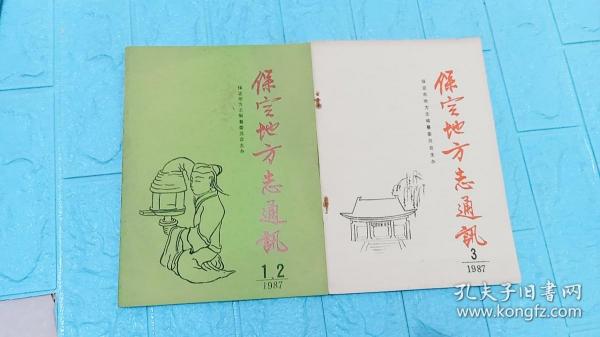 保定地方志通訊
保定地方志编纂委员会主办
1.2
1987
保定地方志通訊
保定地方志编纂委员会主办
3
1987
孔夫子旧书网
www.kongfz.com